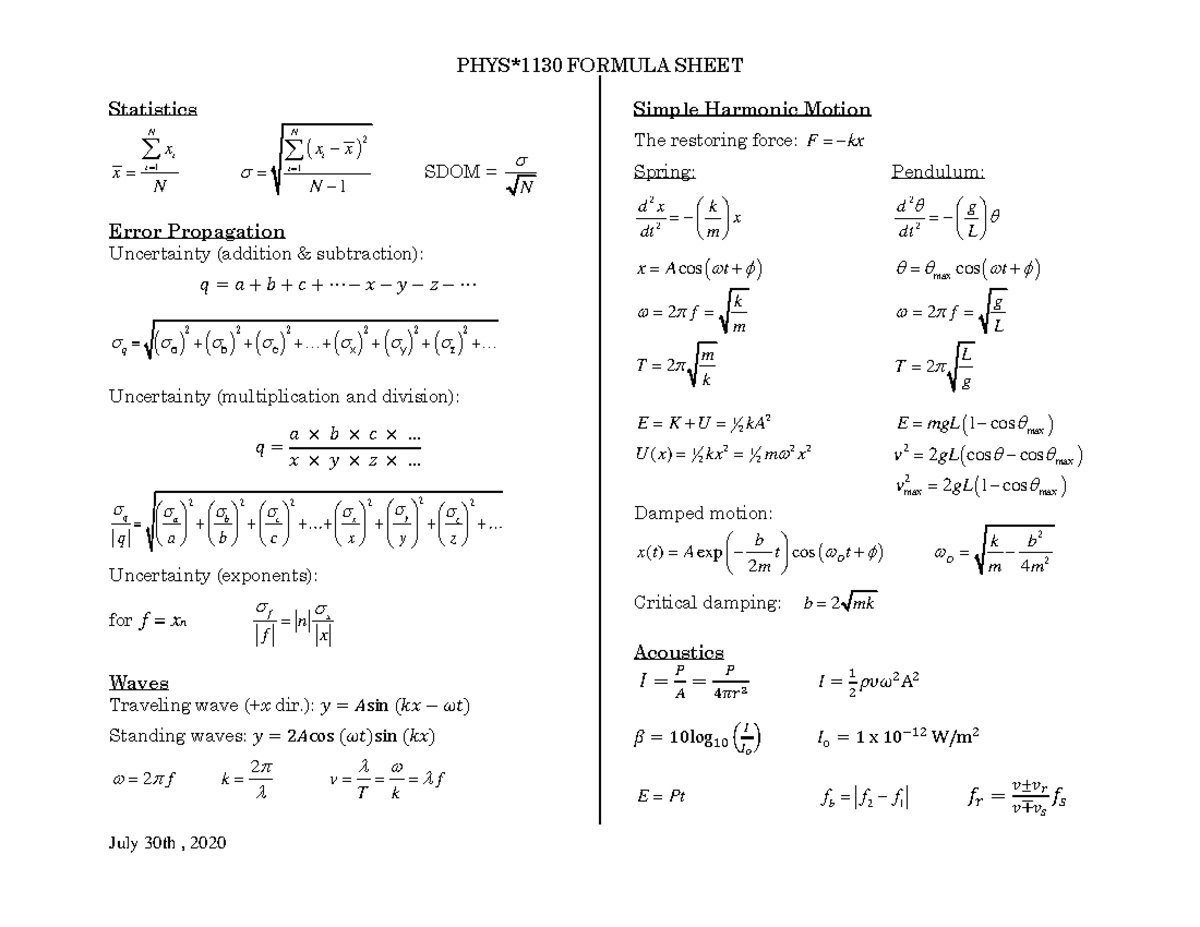 PHYS*1130 FORMULA SHEET
Statistics
x̄ = ∑_{i=1}^{N} x_i / N    σ = √(∑_{i=1}^{N} (x_i − x̄)² / (N − 1))    SDOM = σ/√N
Error Propagation
Uncertainty (addition & subtraction):
q = a + b + c + ⋯ − x − y − z − ⋯
σ_q = √((σ_a)² + (σ_b)² + (σ_c)² + … + (σ_x)² + (σ_y)² + (σ_z)² + …)
Uncertainty (multiplication and division):
q = (a × b × c × …) / (x × y × z × …)
σ_q/|q| = √((σ_a/a)² + (σ_b/b)² + (σ_c/c)² + … + (σ_x/x)² + (σ_y/y)² + (σ_z/z)² + …)
Uncertainty (exponents):
for f = xn    σ_f/|f| = |n| σ_x/|x|
Waves
Traveling wave (+x dir.): y = Asin (kx − ωt)
Standing waves: y = 2Acos (ωt)sin (kx)
ω = 2πf    k = 2π/λ    v = λ/T = ω/k = λf
July 30th , 2020
Simple Harmonic Motion
The restoring force: F = −kx
Spring:    Pendulum:
d²x/dt² = −(k/m)x    d²θ/dt² = −(g/L)θ
x = A cos(ωt + ϕ)    θ = θ_max cos(ωt + ϕ)
ω = 2πf = √(k/m)    ω = 2πf = √(g/L)
T = 2π√(m/k)    T = 2π√(L/g)
E = K + U = ½kA²    E = mgL(1 − cosθ_max)
U(x) = ½kx² = ½mω²x²    v² = 2gL(cosθ − cosθ_max)
v²_max = 2gL(1 − cosθ_max)
Damped motion:
x(t) = A exp(−(b/2m)t) cos(ω_D t + ϕ)    ω_D = √(k/m − b²/4m²)
Critical damping: b = 2√mk
Acoustics
I = P/A = P/4πr²    I = ½ρυω²A²
β = 10log₁₀(I/I_o)    I_o = 1 x 10⁻¹² W/m²
E = Pt    f_b = |f₂ − f₁|    f_r = (v±v_r)/(v∓v_s) f_s